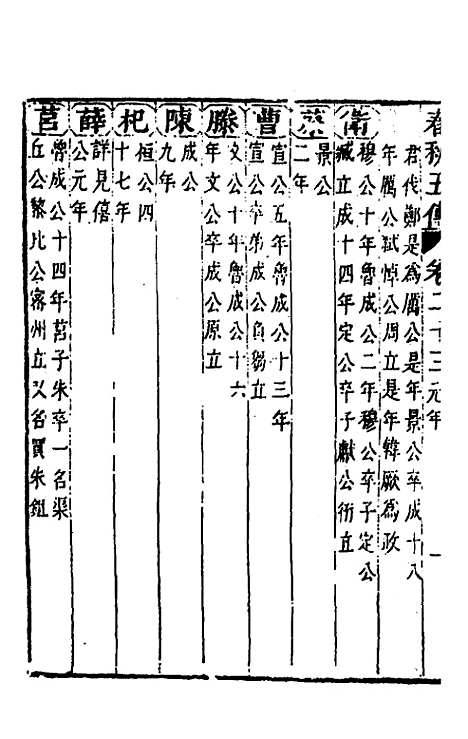 春秋五傳 卷二十三 元年 一
君伐鄭是為厲公是年景公卒成十八
年厲公弑悼公周立是年韓厥為政
衛
穆公十年魯成公二年穆公卒子定公
臧立成十四年定公卒子獻公衎立
蔡
景公
二年
曹
宣公五年魯成公十三年
宣公卒弟成公負芻立
滕
文公十年魯成公十六
年文公卒成公原立
陳
成公
九年
杞
桓公四
十七年
薛
詳見僖
公元年
莒
魯成公十四年莒子朱卒一名渠
丘公黎比公密州立又名買朱鉏